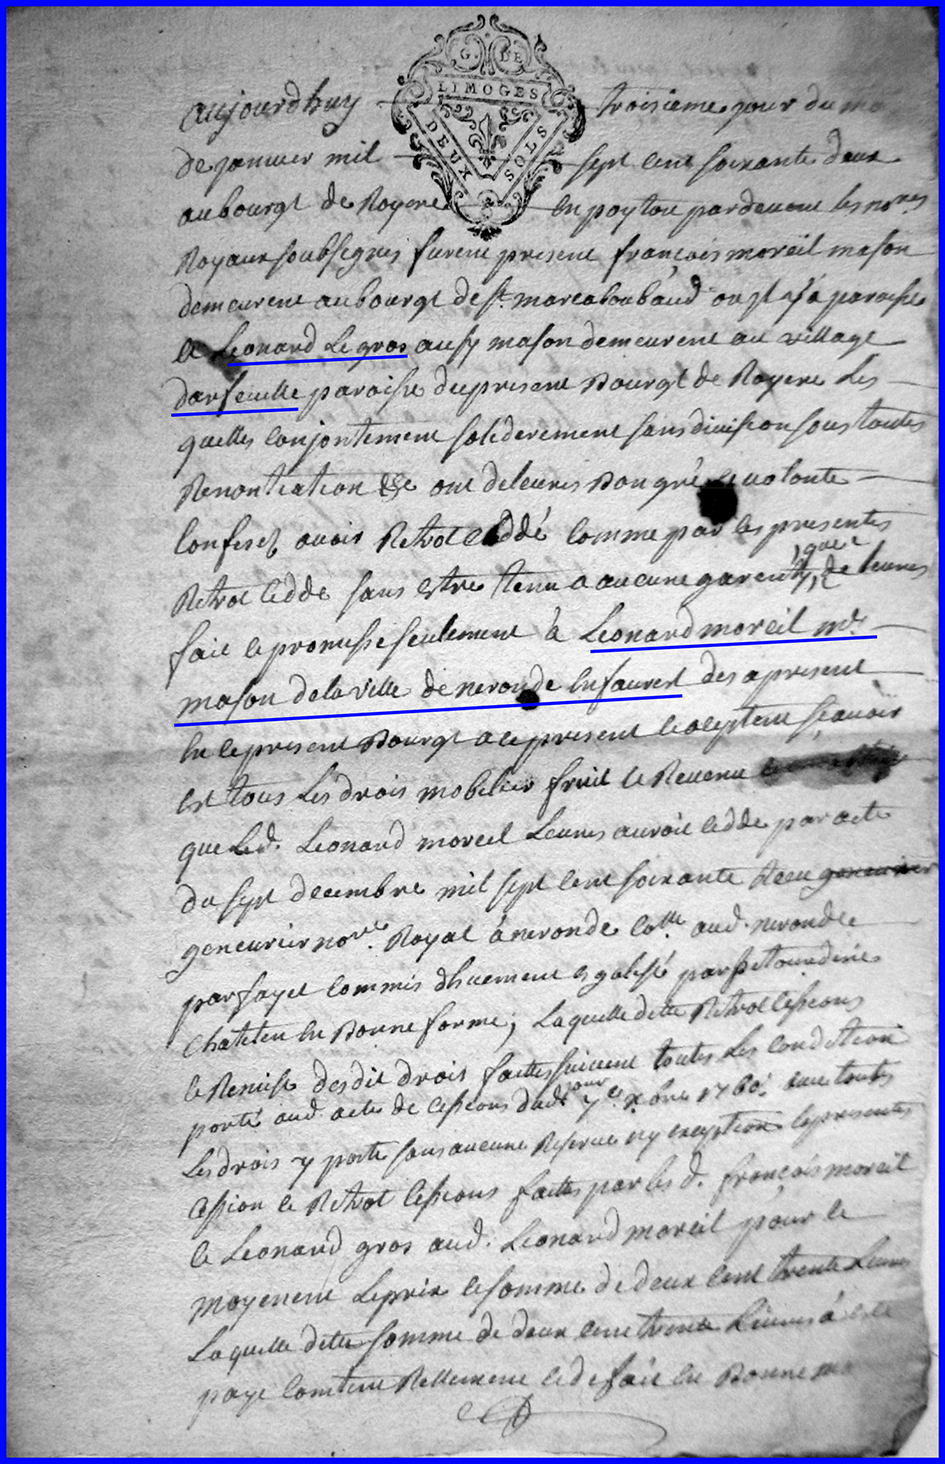 G. DE
LIMOGES
DEUX SOLS
aujourdhuy troisieme jour du mo
de janvier mil sept cent soixante deux
au bourgt de Royere en poytou pardevant les nores
Royaux soubsegnes furent present francois moreil mason
demeurent au bourgt de st. marc a paroisse
et Leonard Le gros aussy mason demeurent au village
darfeuille paroisse du present Bourgt de Royere Les
quelles conjontement soliderement sans division sous toutes
Renontiation &c ont de leurs Bon gré et volonte
confessé avoir Retroceddé comme par les presentes
Retrocedde sans estre tenu a aucune garenty, que de leurs
fait et promesse seulement à Leonard moreil md.
mason de la ville de neronde en faurest des a present
en le present Bourgt a ce present et aceptent scavoir
est tous Les drois mobilier fruit et Revenu
que Led. Leonard moreil Leurs auroit cedde par acte
du sept decembre mil sept cent soixante Receu
geneurier nore. Royal à neronde aud. neronde
par fayet commis dhuement
en Bonne forme; Laquelle ditte Retrocessions
et Remise desdit drois faittes suivent toutes Les condittions
porté aud. actes de cessions dud. jour 7e xbre 1760. avec toutes
Les drois y porte sans aucune Reserve ny exception et presentes
Cession et Retrocessions faittes par les d. francois moreil
et Leonard gros aud. Leonard moreil pour le
moyenent Le prix et somme de deux cent trente Livres
Laquelle ditte somme de deux cent trente Livres à este
paye contenu Rellement et de fait en Bonne